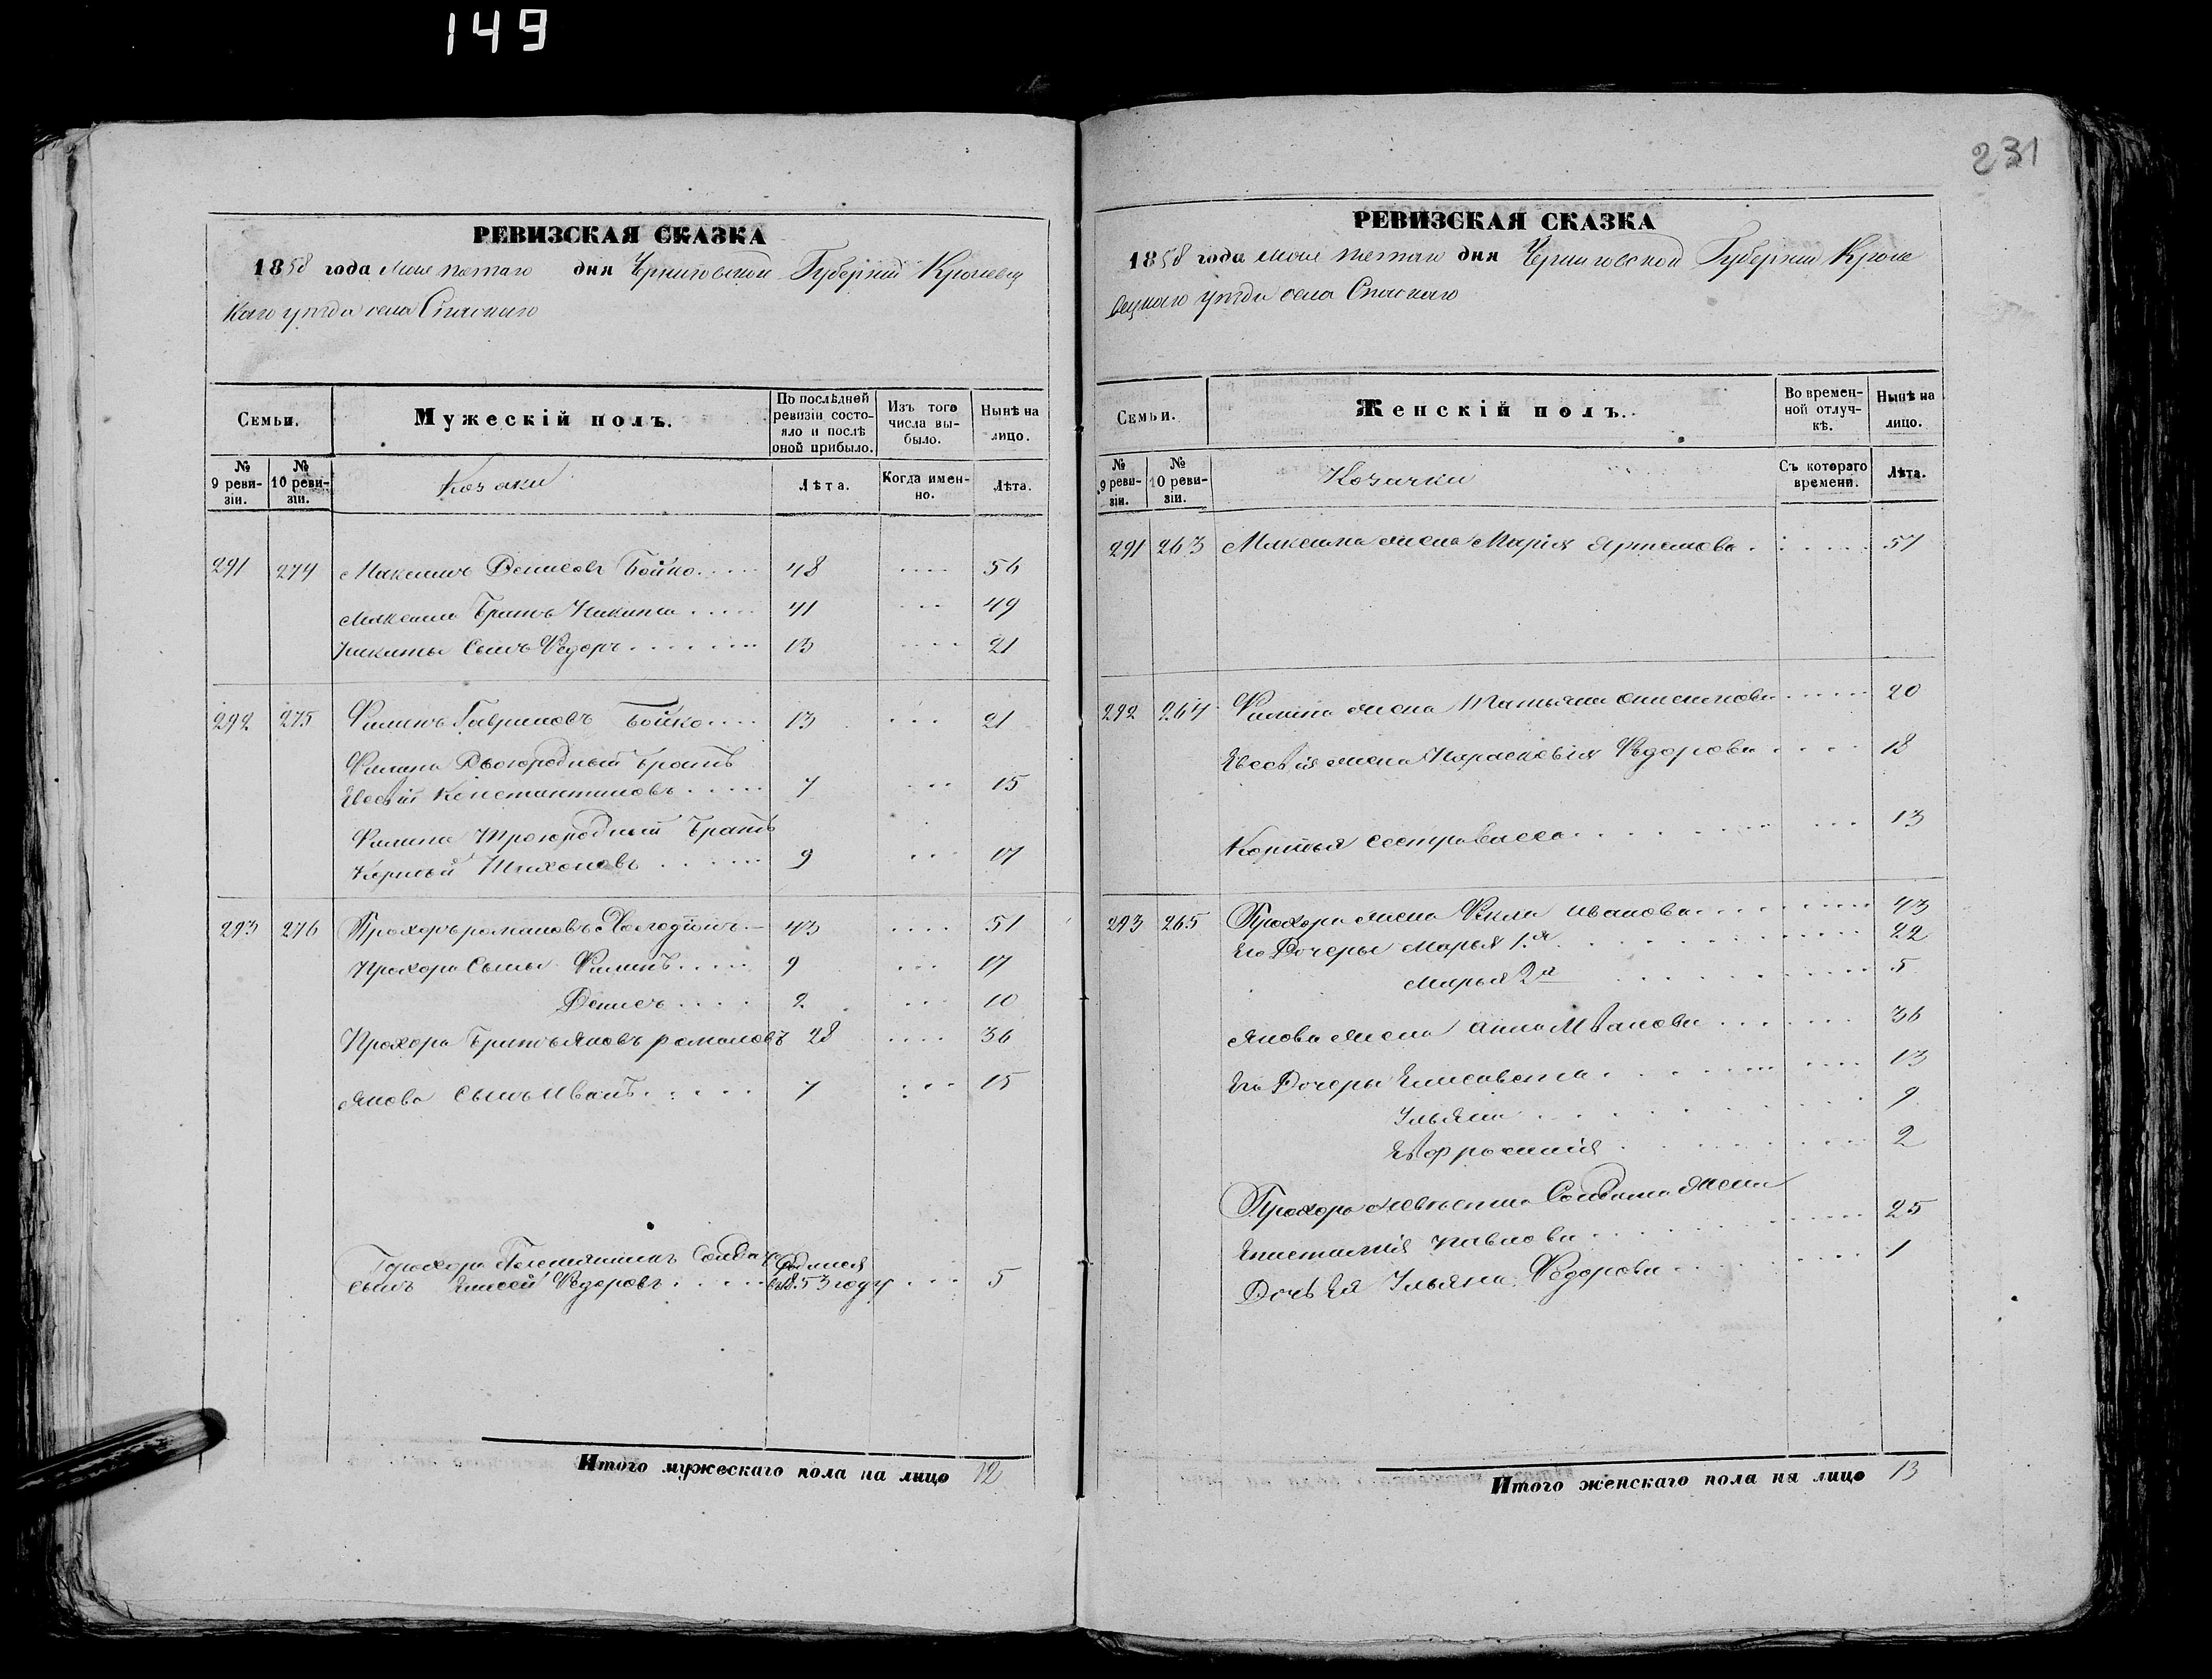 149
231
РЕВИЗСКАЯ СКАЗКА
1858 года пятаго дня Черниговской Губерніи Кролевец
каго уѣзда села Спаскаго
Семьи.
Мужескій полъ.
По послѣдней ревизіи состояло и послѣ оной прибыло.
Изъ того числа выбыло.
Нынѣ на лицо.
№ 9 ревизіи.
№ 10 ревизіи.
Козаки
Лѣта.
Когда именно.
Лѣта.
291 274 Максимъ Денисовъ Бойко . . . . 48 . . . . 56
Максима Братъ Никита . . . . 41 . . . 49
Никиты Сынъ Федоръ . . . . . . . 13 . . . . 21
292 275 Филипъ Гавриловъ Бойко . . . . 13 . . . 21
Филипа Двоюродный братъ
Евсѣй Константиновъ . . . . . 7 . . . 15
Филипа Троюродный Братъ
Корнѣй Тихоновъ . . . . . 9 . . . 17
293 276 Прохоръ романовъ 43 . . . . 51
Прохора Сыны Филипъ . . . . 9 . . . 17
Денисъ . . . . 2 . . . 10
Прохора Братъ Яковъ романовъ 28 . . . . 36
Якова Сынъ Иванъ . . . . . 7 . . . 15
Прохора Племянникъ Солдатскій родился
сынъ Елисей Федоровъ . . . . . въ 1853 году . . . 5
Итого мужескаго пола на лицо 12
РЕВИЗСКАЯ СКАЗКА
1858 года пятаго дня Черниговской Губерніи Кроле
вецкаго уѣзда села Спаскаго
Семьи.
Женскій полъ.
Во временной отлучкѣ.
Нынѣ на лицо.
№ 9 ревизіи.
№ 10 ревизіи.
Козачки
Съ котораго времени.
Лѣта.
291 263 Максима жена Марія Артемова . . . . . . 51
292 264 Филипа жена Татьяна Онисимова . . . . . 20
Евсѣя жена Парасковія Федорова . . . . 18
Корнѣя сестра Васса . . . . . . . . . 13
293 265 Прохора жена Фекла Иванова . . . . . . . 43
Его Дочеры Марья 1.я . . . . . . . 22
Марья 2я . . . . . . . 5
Якова жена Анна Иванова . . . . . . 36
Его Дочеры Елисавета . . . . . . . . 13
Ульяна . . . . . . . . 9
Евфросинія . . . . . . . 2
Прохора невѣстка Солдатка жена
Павлова . . . . . . . 25
Дочь Ея Ульяна Федорова . . . . . . . 1
Итого женскаго пола на лицо 13